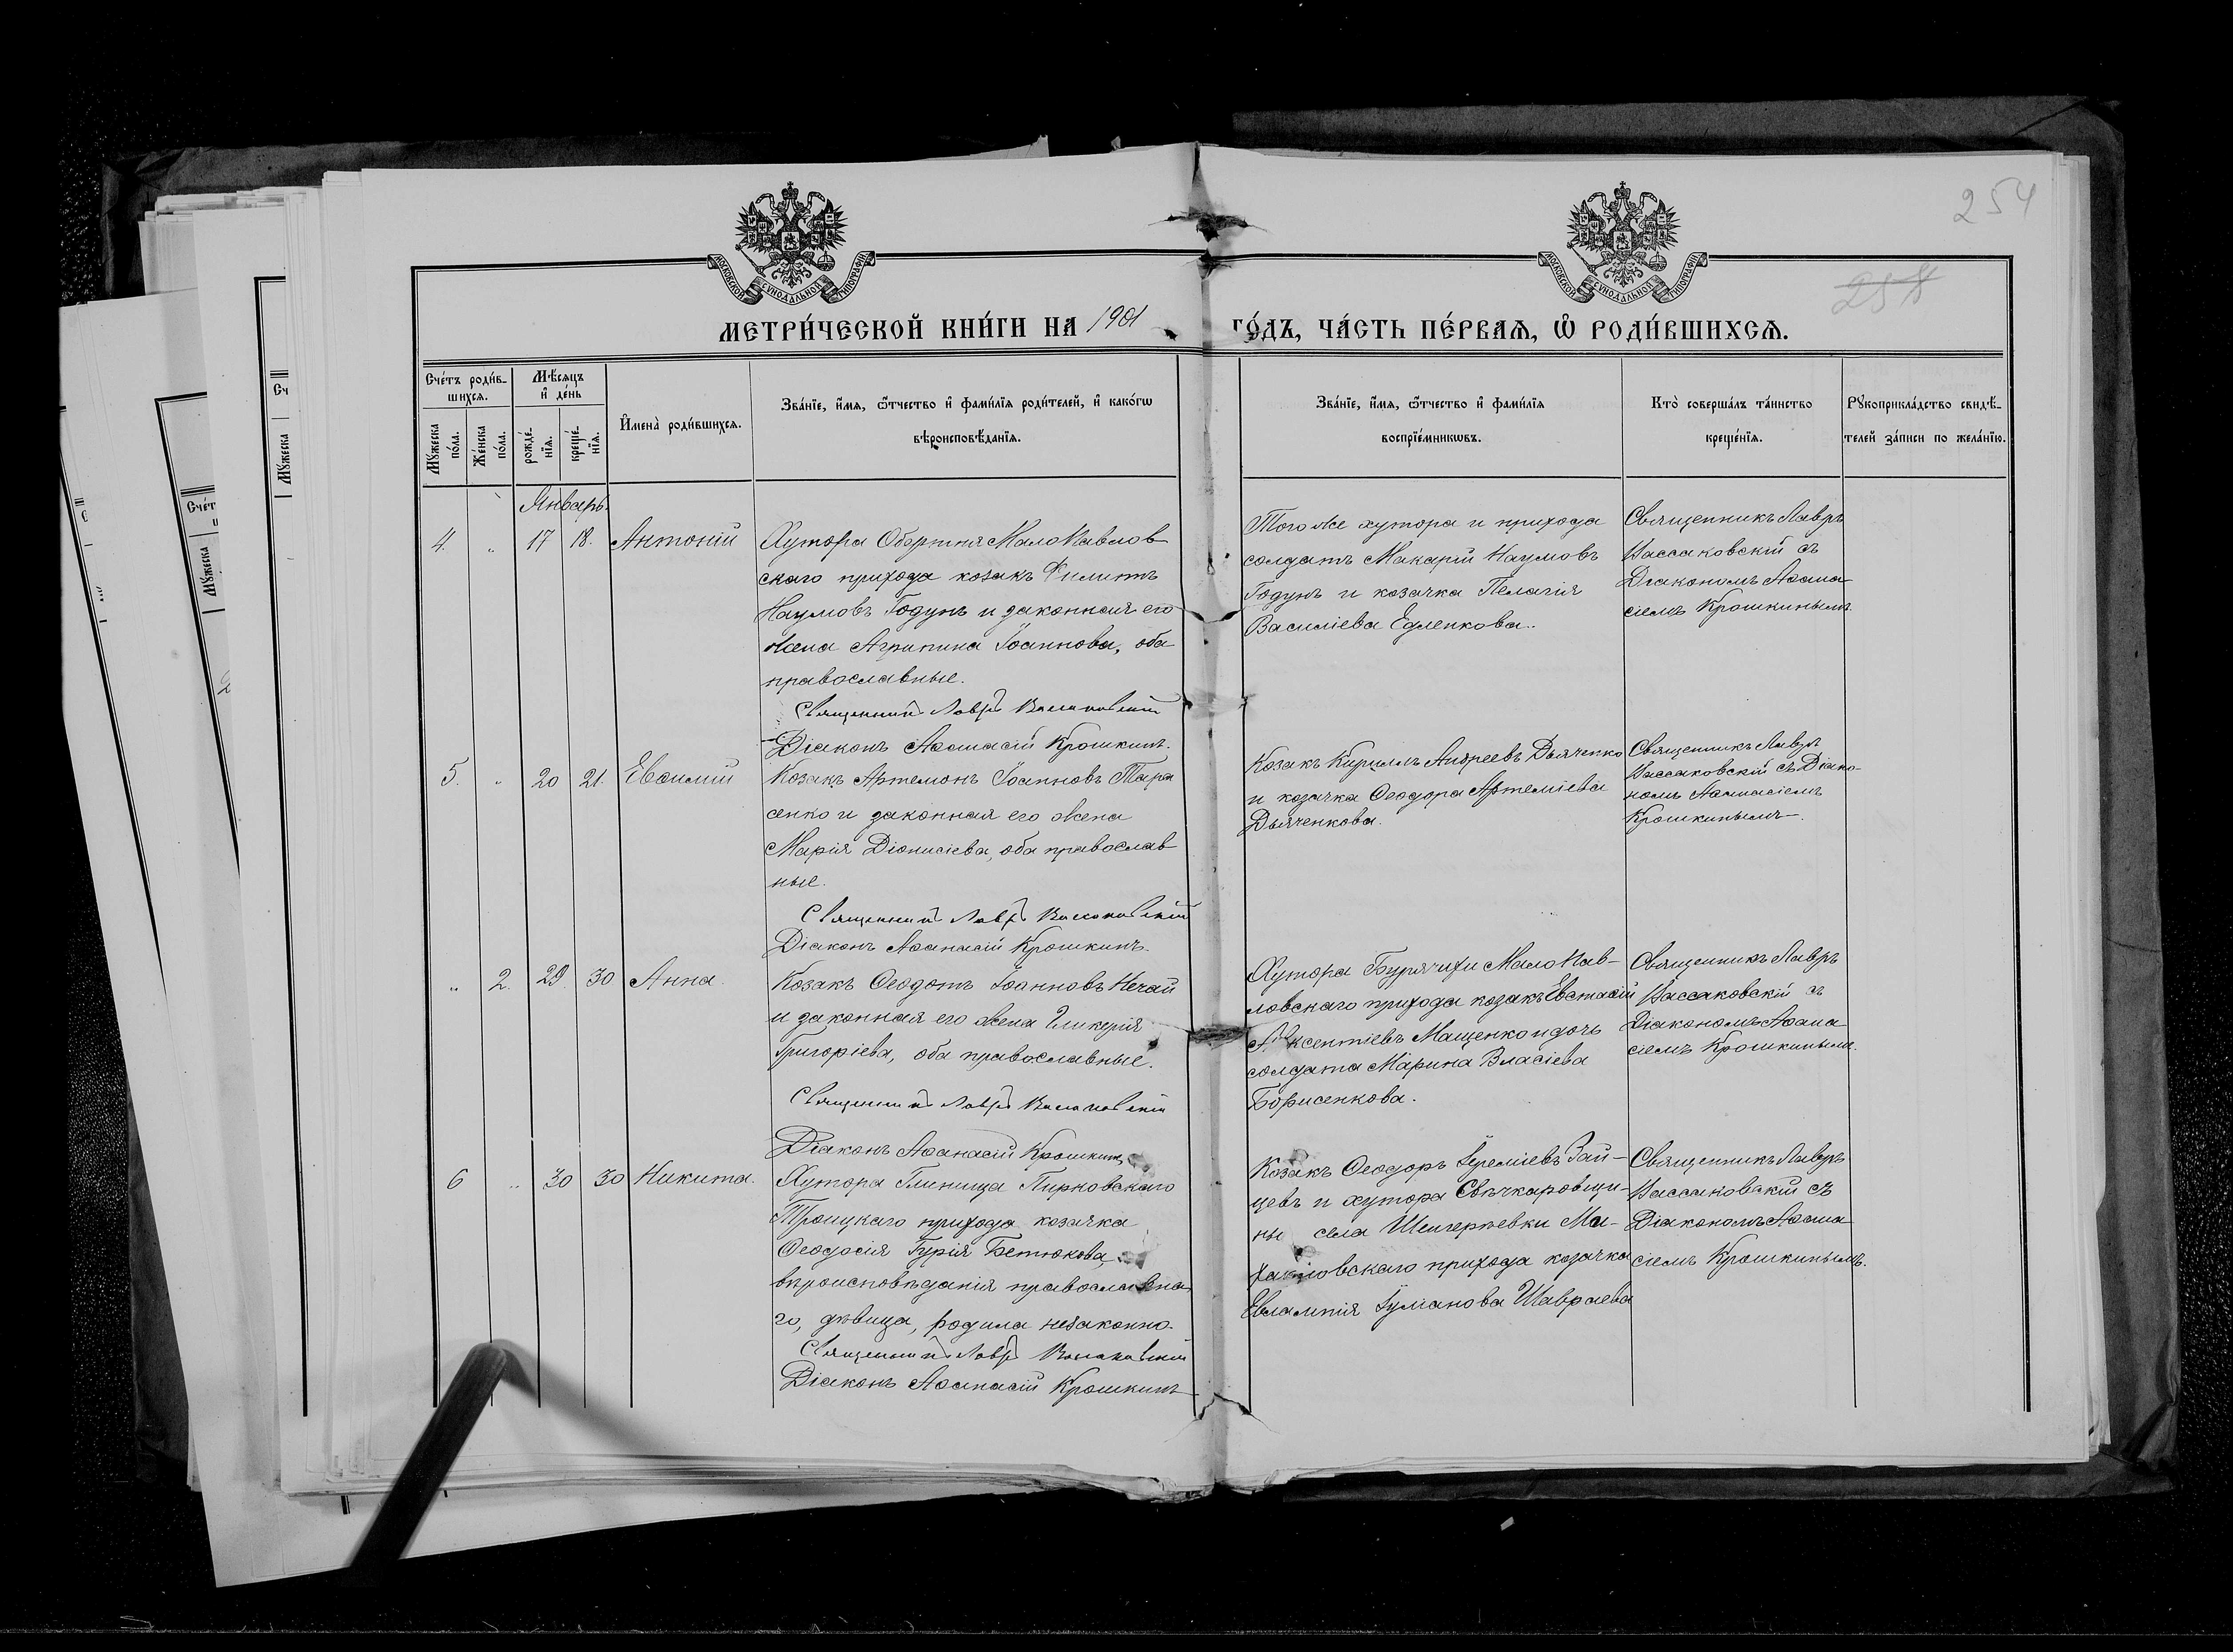 254
258
МОСКОВСКОЙ СУНОДАЛЬНОЙ ТИПОГРАФІИ
МОСКОВСКОЙ СУНОДАЛЬНОЙ ТИПОГРАФІИ
МЕТРИ́ЧЕСКОЙ КНИ́ГИ НА 1901 ГО́ДЪ, ЧА́СТЬ ПЕ́РВАѦ, Ѡ҆ РОДИ́ВШИХСѦ.
Сче́тъ роди́в-
шихсѧ.
Мѣ́сѧцъ
и҆ де́нь
Мꙋ́жеска
по́ла.
Же́нска
по́ла.
рожде́-
нїѧ.
креще́-
нїѧ.
И҆мена̀ роди́вшихсѧ.
Зва́нїе, и҆́мѧ, ѻ҆́тчество и҆ фами́лїѧ роди́телей, и҆ како́гѡ
вѣроисповѣ́данїѧ.
Зва́нїе, и҆́мѧ, ѻ҆́тчество и҆ фами́лїѧ
воспрїе́мникѡвъ.
Кто̀ соверша́лъ та́инство
креще́нїѧ.
Рꙋкоприкла́дство свидѣ́-
телей за́писи по жела́нїю.
Январь.
4. " 17 18. Антоній
Хутора Оборотня МалоПавлов
скаго прихода козакъ Филиппъ
Наумовъ Годунъ и законная его
жена Агрипина Іоаннова, оба
православные.
Священникъ Лавръ Вассаковскій
Діаконъ Аѳанасій Крошкинъ.
Того же хутора и прихода
солдатъ Макарій Наумовъ
Годунъ и козачка Пелагія
Василіева Едленкова.
Священникъ Лавръ
Вассаковскій съ
Діакономъ Аѳана
сіемъ Крошкинымъ
5. " 20 21. Евѳимій
Козакъ Артемонъ Іоанновъ Тара
сенко и законная его жена
Марія Діонисіева, оба православ
ные.
Священникъ Лавръ Вассаковскій
Діаконъ Аѳанасій Крошкинъ
Козакъ Кириллъ Андреевъ Дьяченко
и козачка Ѳеодора Артеміева
Дьяченкова.
Священникъ Лавръ
Вассаковскій съ Діако-
номъ Аѳанасіемъ
Крошкинымъ.
" 2. 29. 30 Анна.
Козакъ Ѳеодотъ Іоанновъ Нечай
и законная его жена Гликерія
Григоріева, оба православные.
Священникъ Лавръ Вассаковскій
Діаконъ Аѳанасій Крошкинъ
Хутора Бурячихи МалоПав-
ловскаго прихода козакъ Евстаѳій
Авксентіевъ Мащенко и дочь
солдата Марина Власіева
Борисенкова.
Священникъ Лавръ
Вассаковскій съ
Діакономъ Аѳана
сіемъ Крошкинымъ.
6 " 30 30 Никита.
Хутора Глинища Пирковскаго
Троицкаго прихода козачка
Ѳеодосія Гурія Бетюкова,
вѣроисповѣданія православна
го, дѣвица, родила незаконно.
Священникъ Лавръ Вассаковскій
Діаконъ Аѳанасій Крошкинъ
Козакъ Ѳеодоръ Іереміевъ Зай-
цевъ и хутора Свѣчкаровщи-
ны села Ми-
хайловскаго прихода козачка
Евлампія Іуліанова Шавраева
Священникъ Лавръ
Вассаковскій съ
Діакономъ Аѳана
сіемъ Крошкинымъ.